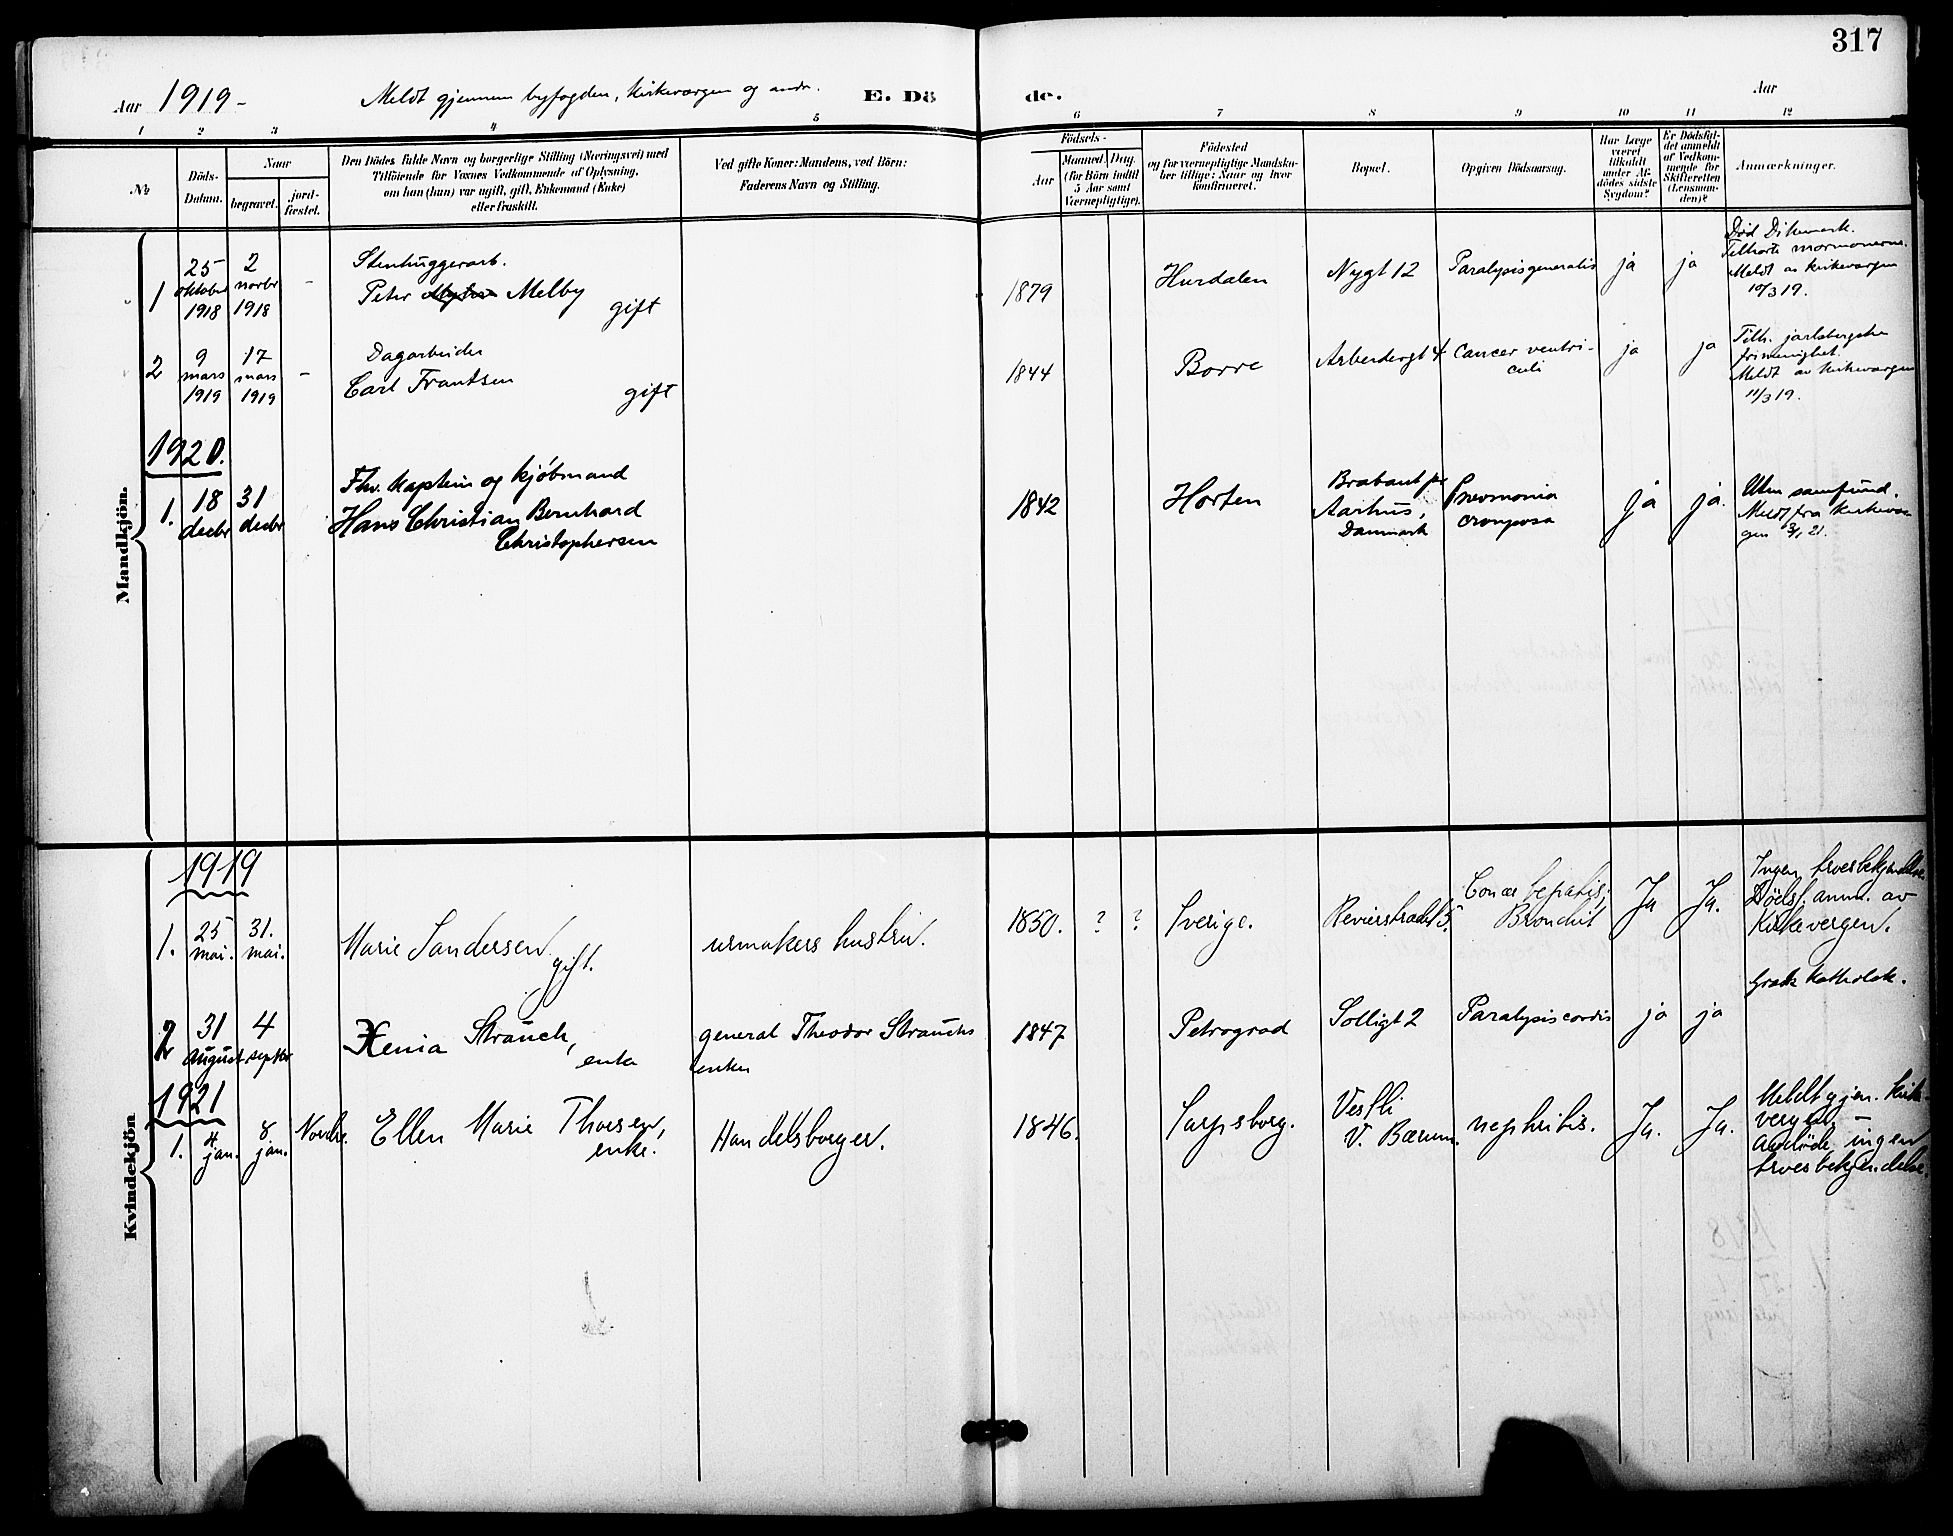 317
Aar 1919 - Meldt gjennem byfogden, kirkevergen og andr. E. Dö de. Aar
1 2 3 4 5 6 7 8 9 10 11 12
No
Döds-
Datum.
Naar
begravet.
jord-
fæstet.
Den Dödes fulde Navn og borgerlige Stilling (Næringsvei) med
Tilföiende for Voxnes Vedkommende af Oplysning,
om han (hun) var ugift, gift, Enkemand (Enke)
eller fraskilt.
Ved gifte Koner: Mandens, ved Börn:
Faderens Navn og Stilling.
Födsels-
Aar
Maaned Dag
(for Börn indtil
5 Aar samt
Værnepligtige).
Födested
og for værnepligtige Mandsku-
ber tillige: Naar og hvor
konfirmeret.
Bopæl.
Opgiven Dödsaarsag.
Har Læge
været
tilkaldt
under Af-
dödes sidste
Sygdom?
Er Dödsfal-
det anmeldt
af Vedkom-
mende for
Skifteretten
(Lensman-
den)?
Anmærkninger.
Mandkjön.
1
25
oktober
1918
2
novbr
1918
-
Stenhuggerarb.
Peter Melby
gift
1879
Hurdalen
Nygt 12
Paralysis generalis
ja
ja
Död Dikemark.
Tilhørte mormonerne.
Meldt av kirkevergen
10/3 19.
2
9
mars
1919
17
mars
1919
-
Dagarbeider
Carl Frantsen
gift
1844
Borre
Arbeidergt 4
Cancer ventri-
culi
ja
ja
Tilh. jarlsbergske
frimenighet.
Meldt av kirkevergen
11/3 19.
1920.
1.
18
decbr
31
decbr
Fhv. kaptein og kjöbmand
Hans Christian Bernhard
Christophersen
1842
Horten
Brabant pr
Aarhus,
Danmark
Pneumonia
crouposa
ja
ja.
Uten samfund.
Meldt fra kirkever
gen 3/1 21.
Kvindekjön
1919
1.
25
mai.
31.
mai.
Marie Sandersen
gift.
urmakers hustru.
1850.
?
?
Sverige.
Revierstrædet 5.
Cancer hepatis;
Bronchit
Ja
Ja.
Ingen troesbekjendelse.
Dödsf. anm. av
Kirkevergen.
2
31
august.
4
septbr
Xenia Strauch,
enke
general Theodor Strauchs
enke
1847
Petrograd
Solligt 2
Paralysis cordis
ja
ja
Græsk katholsk.
1921
1.
4
jan.
8
jan.
Nordre.
Ellen Marie Thorsen,
enke.
Handelsborger.
1846.
Sarpsborg.
Vestli
V. Bærum.
nephritis.
Ja.
Ja.
Meldt gjen. kirke
vergen. –
Avdöde ingen
troesbekjendelse.